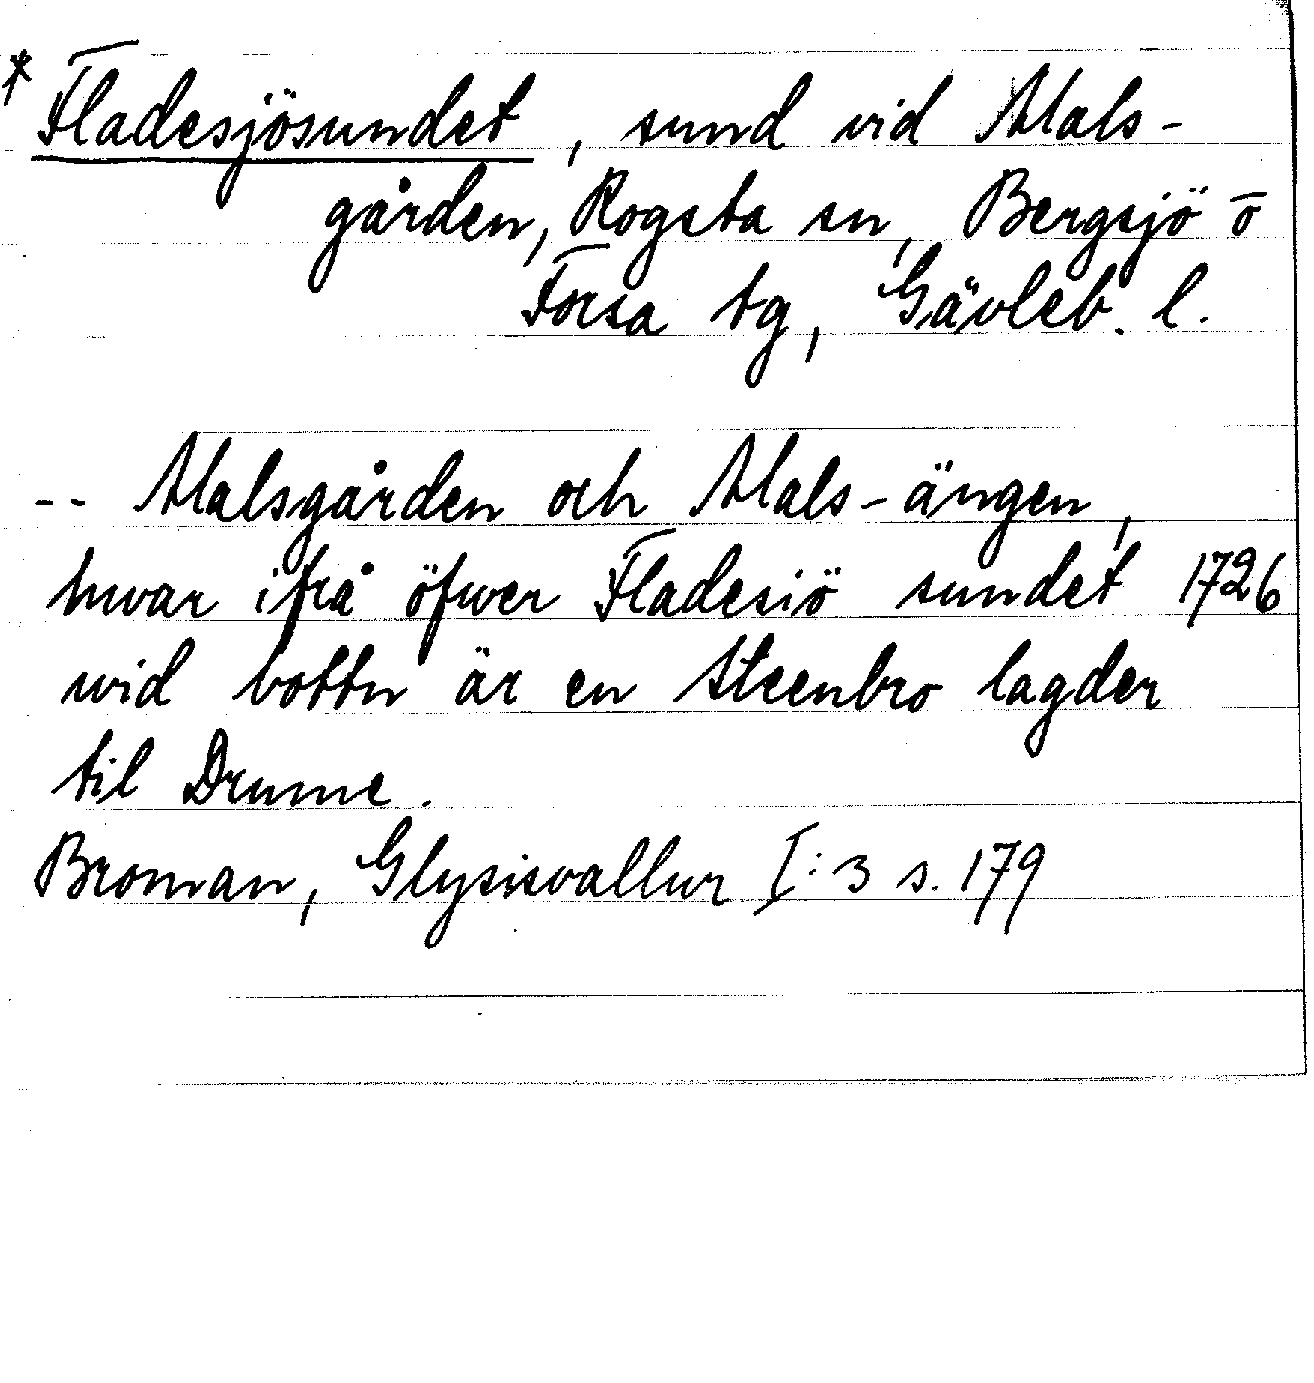 * Fladesjösundet, sund vid Mals-
gården, Rogsta sn, Bergsjö o
Forsa tg, Gävleb. l.
-- Malsgården och Mals-ängen,
hwar ifrå öfwer Fladesiö sundet 1726
wid bottn är en Steenbro lagder
til Drume.
Broman, Glysisvallur I:3 s. 179